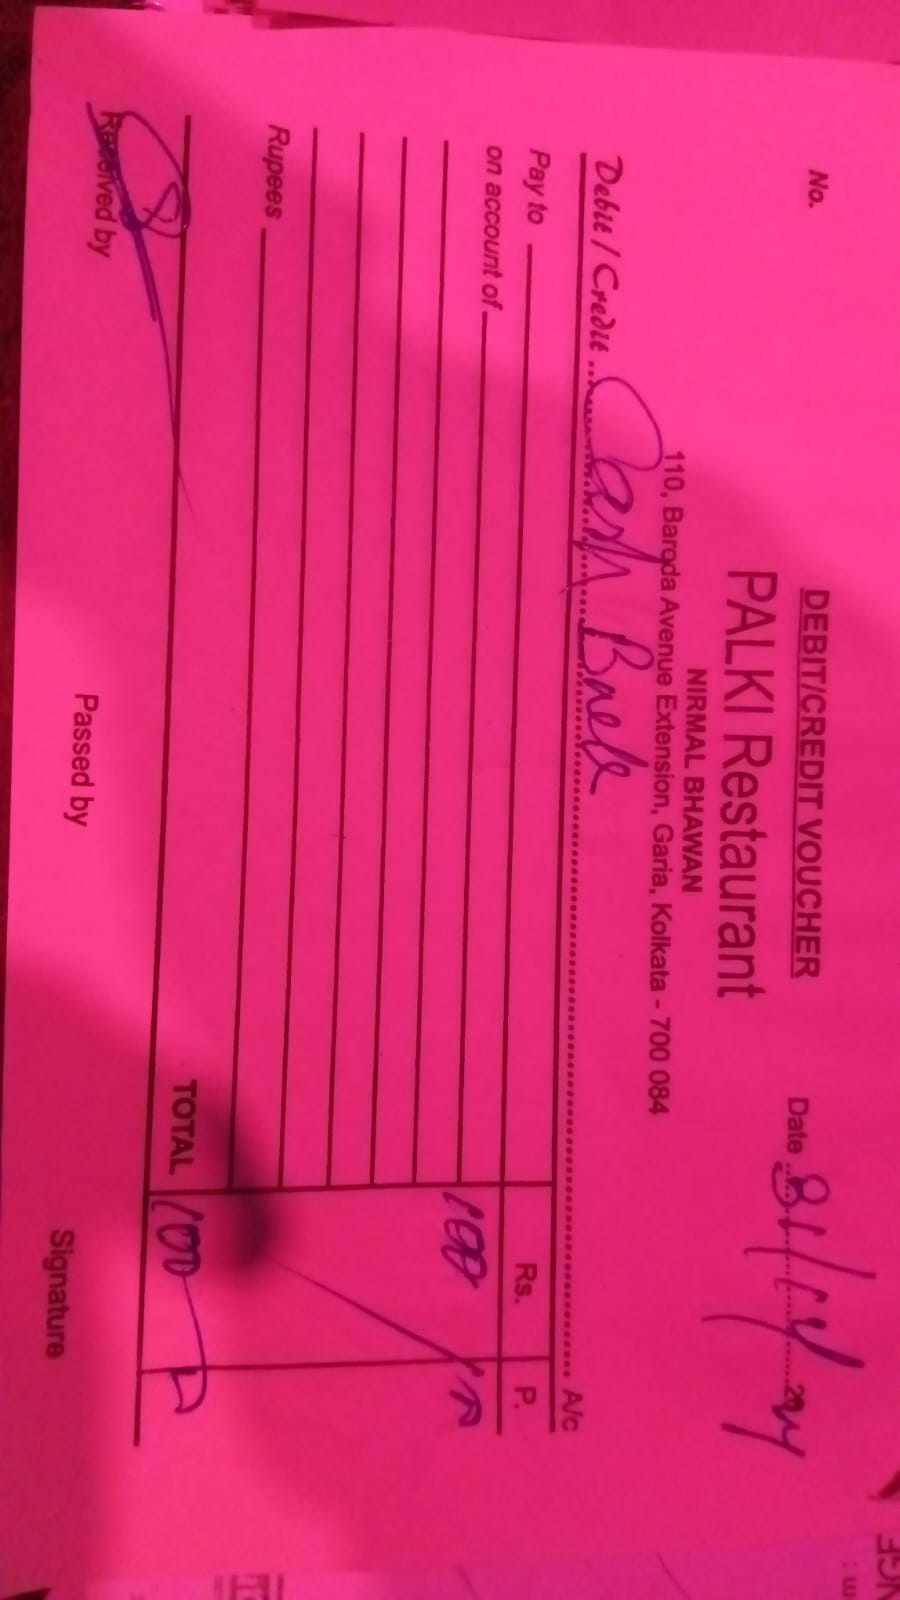 No.
DEBIT/CREDIT VOUCHER
PALKI Restaurant
Date
NIRMAL BHAWAN
110, Baroda Avenue Extension, Garia, Kolkata - 700 084
Debit / Credit Cash Back A/c
Pay to Rs. P.
on account of
100
Rupees
TOTAL 100
Received by Passed by Signature